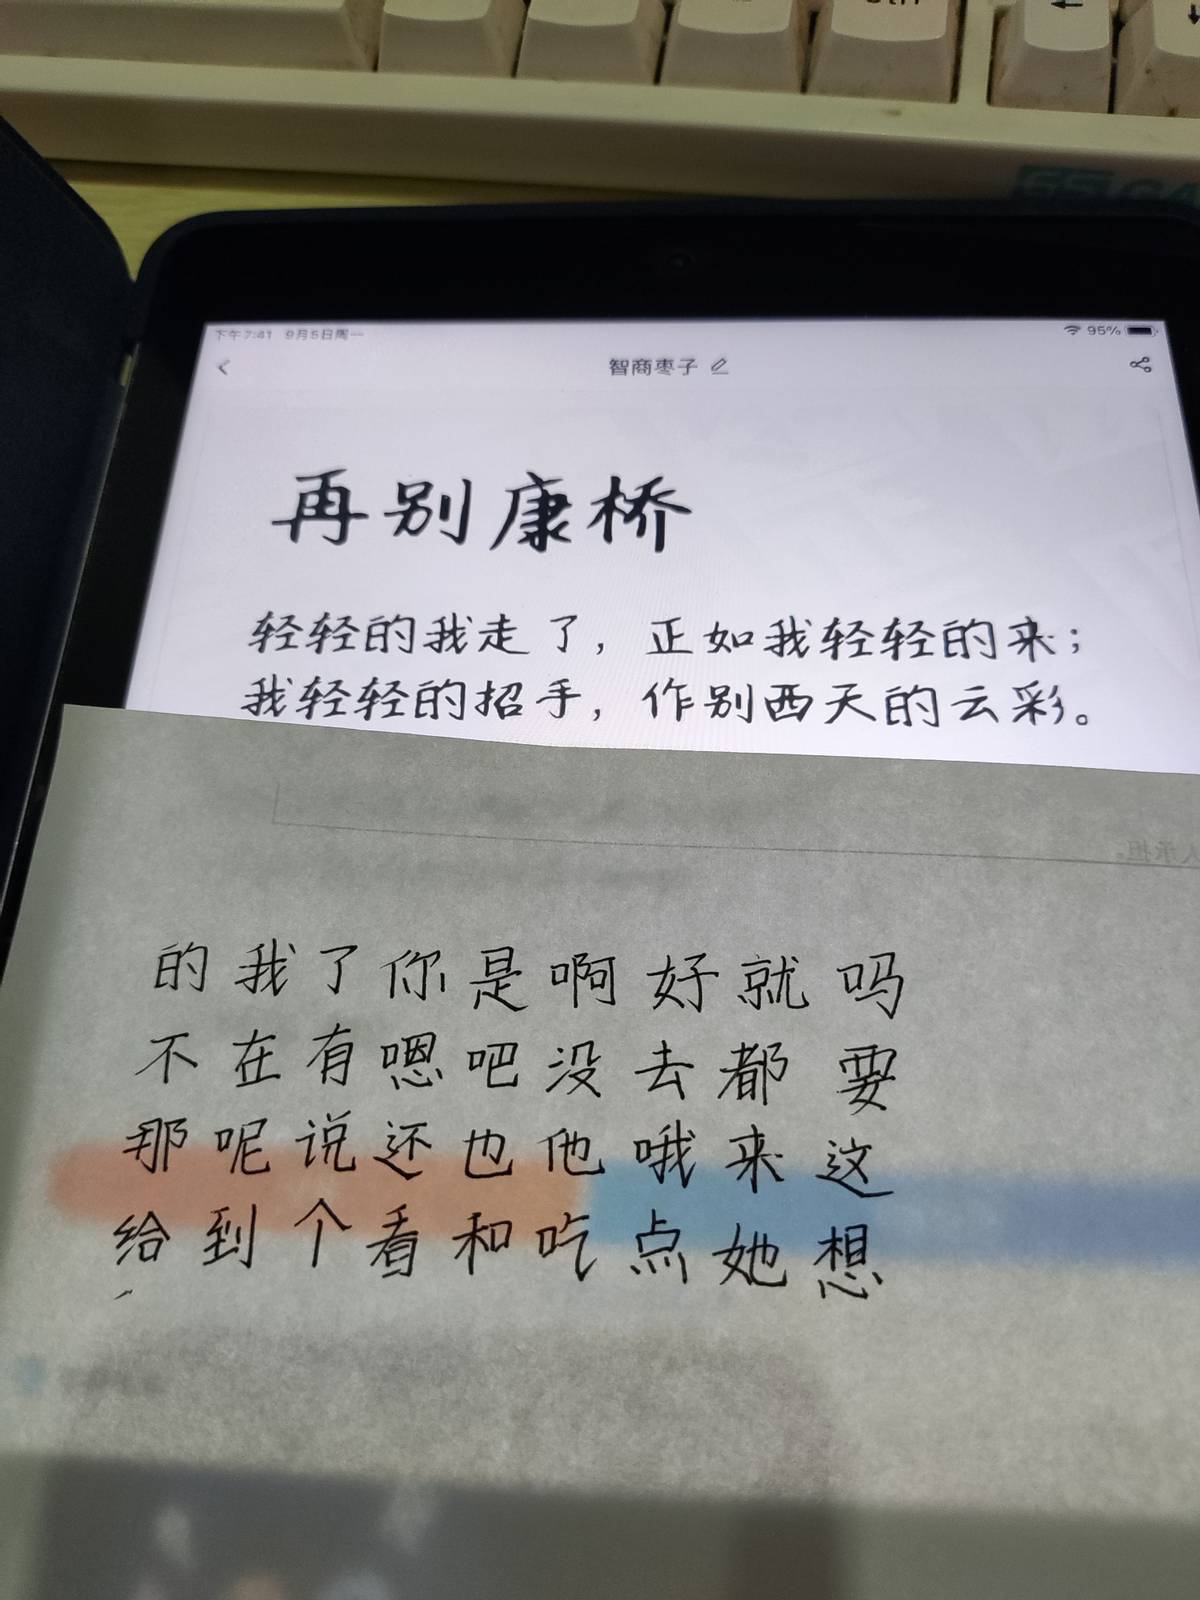 下午7:41 9月5日周一
95%
智商枣子
再别康桥
轻轻的我走了，正如我轻轻的来；
我轻轻的招手，作别西天的云彩。
人承担。
的我了你是啊好就吗
不在有嗯吧没去都要
那呢说还也他哦来这
给到个看和吃点她想